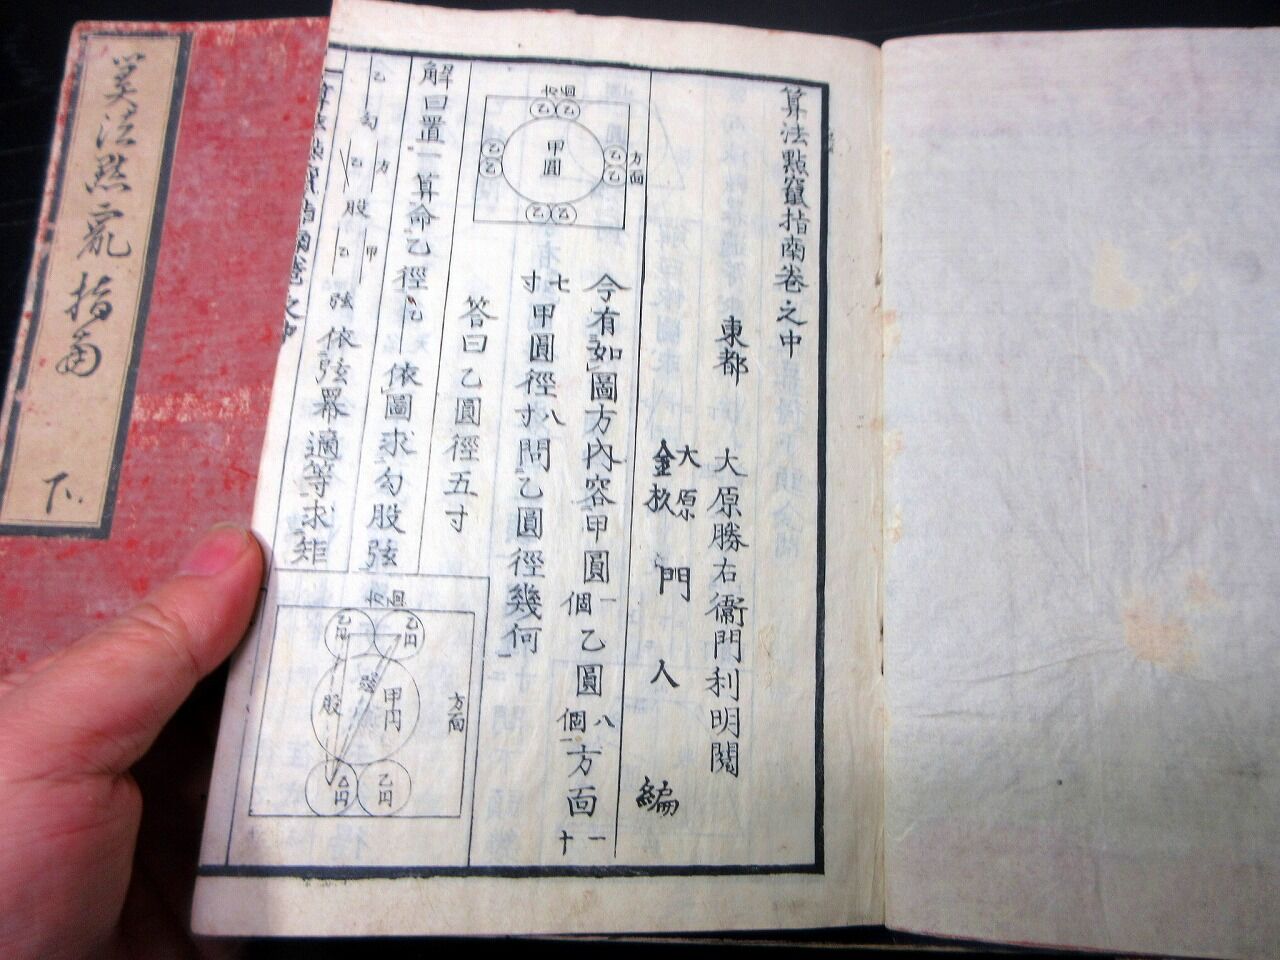 算法點竄指南卷之中
東都 大原勝右衞門利明閱
大原
金杦
門人
編
今有如圖方內容甲圓一個乙圓八個方面一十
七寸甲圓徑八寸問乙圓徑幾何
答曰乙圓徑五寸
方面
甲圓
乙
乙
乙
乙
乙
乙
乙
乙
解曰置一算命乙徑
依圖求勾股弦
乙
勾
方
乙
股
甲
乙
弦
依弦冪適等求矩
方面
乙円
乙円
甲円
股
弦
乙円
乙円
算法點竄指南
下